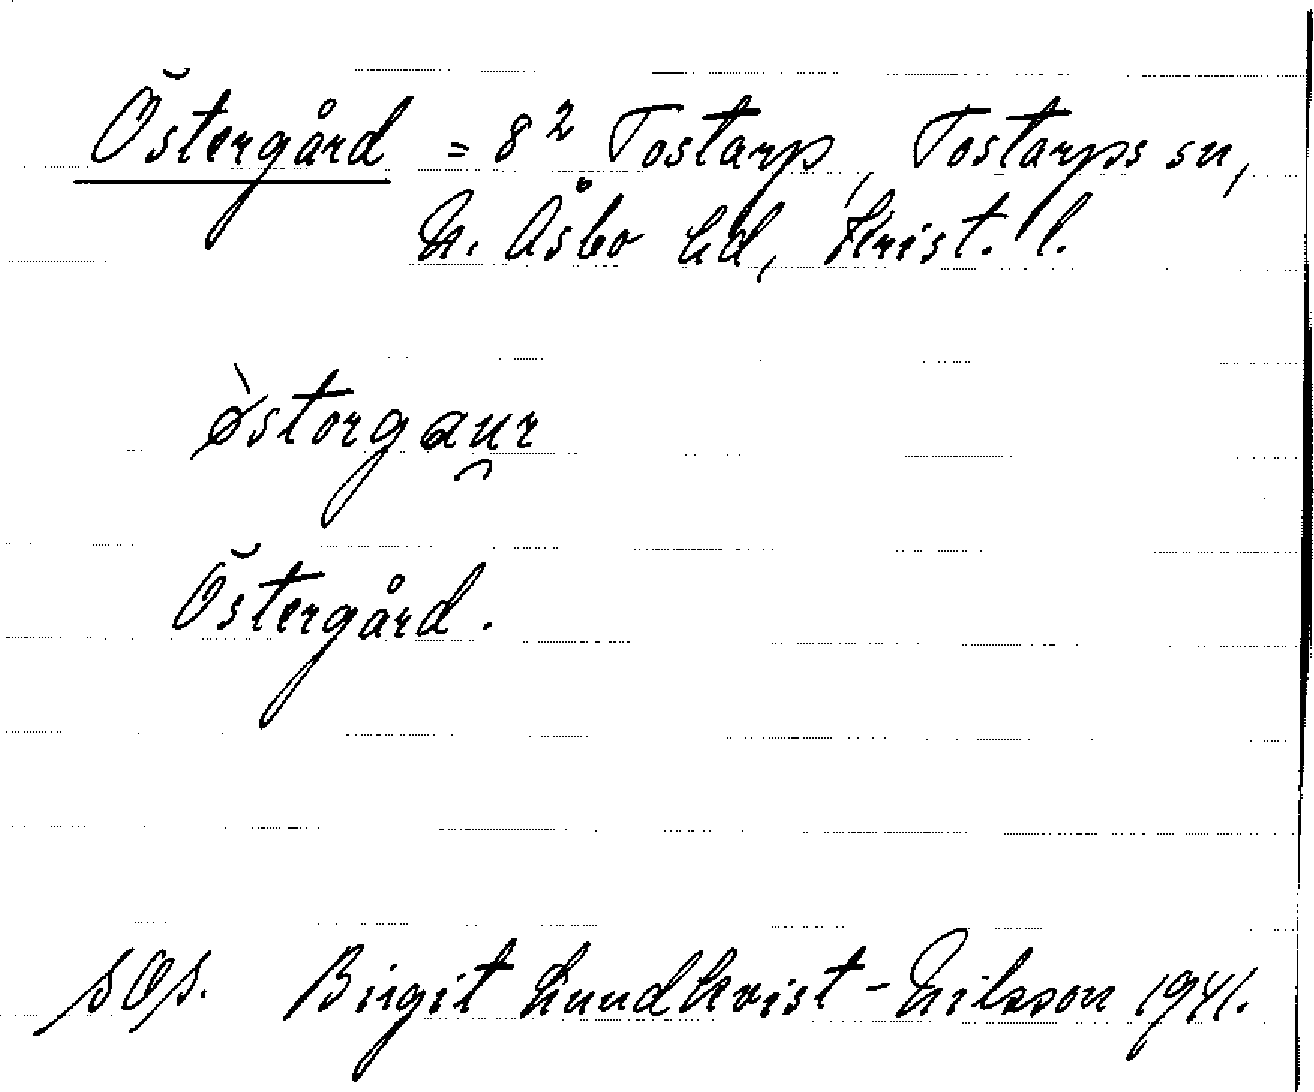 Östergård = 8² Tostarp, Tostarps sn,
N. Åsbo hd, Krist. l.
ø̀storgau̯r
Östergård.
SOS. Birgit Lundkvist-Nilsson 1941.